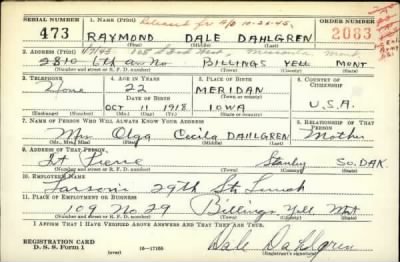 SERIAL NUMBER 1. NAME (Print) Released for A/O 10-26-45 ORDER NUMBER
473 RAYMOND DALE DAHLGREN 2083
(First) (Middle) (Last)
2. ADDRESS (Print) 1/7/43 105 S 3rd West, Missoula Mont
2810 6th av. No BILLINGS YELL MONT
(Number and street or R. F. D. number) (Town) (County) (State)
3. TELEPHONE 4. AGE IN YEARS 5. PLACE OF BIRTH 6. COUNTRY OF CITIZENSHIP
None 22 MERIDAN
DATE OF BIRTH (Town or county)
OCT 11 1918 IOWA U.S.A.
(Exchange) (Number) (Mo.) (Day) (Yr.) (State or country)
7. NAME OF PERSON WHO WILL ALWAYS KNOW YOUR ADDRESS 8. RELATIONSHIP OF THAT PERSON
Mrs Olga Cecila DAHLGREN Mother
(Mr., Mrs., Miss) (First) (Middle) (Last)
9. ADDRESS OF THAT PERSON
Ft Pierre Stanley So. DAK.
(Number and street or R. F. D. number) (Town) (County) (State)
10. EMPLOYER'S NAME
29th St. Lunch
11. PLACE OF EMPLOYMENT OR BUSINESS
109 No. 29 Billings Yell. Mt
(Number and street or R. F. D. number) (Town) (County) (State)
I AFFIRM THAT I HAVE VERIFIED ABOVE ANSWERS AND THAT THEY ARE TRUE.
REGISTRATION CARD
D. S. S. Form 1 (over) 16—17105 Dale Dahlgren
(Registrant's signature)